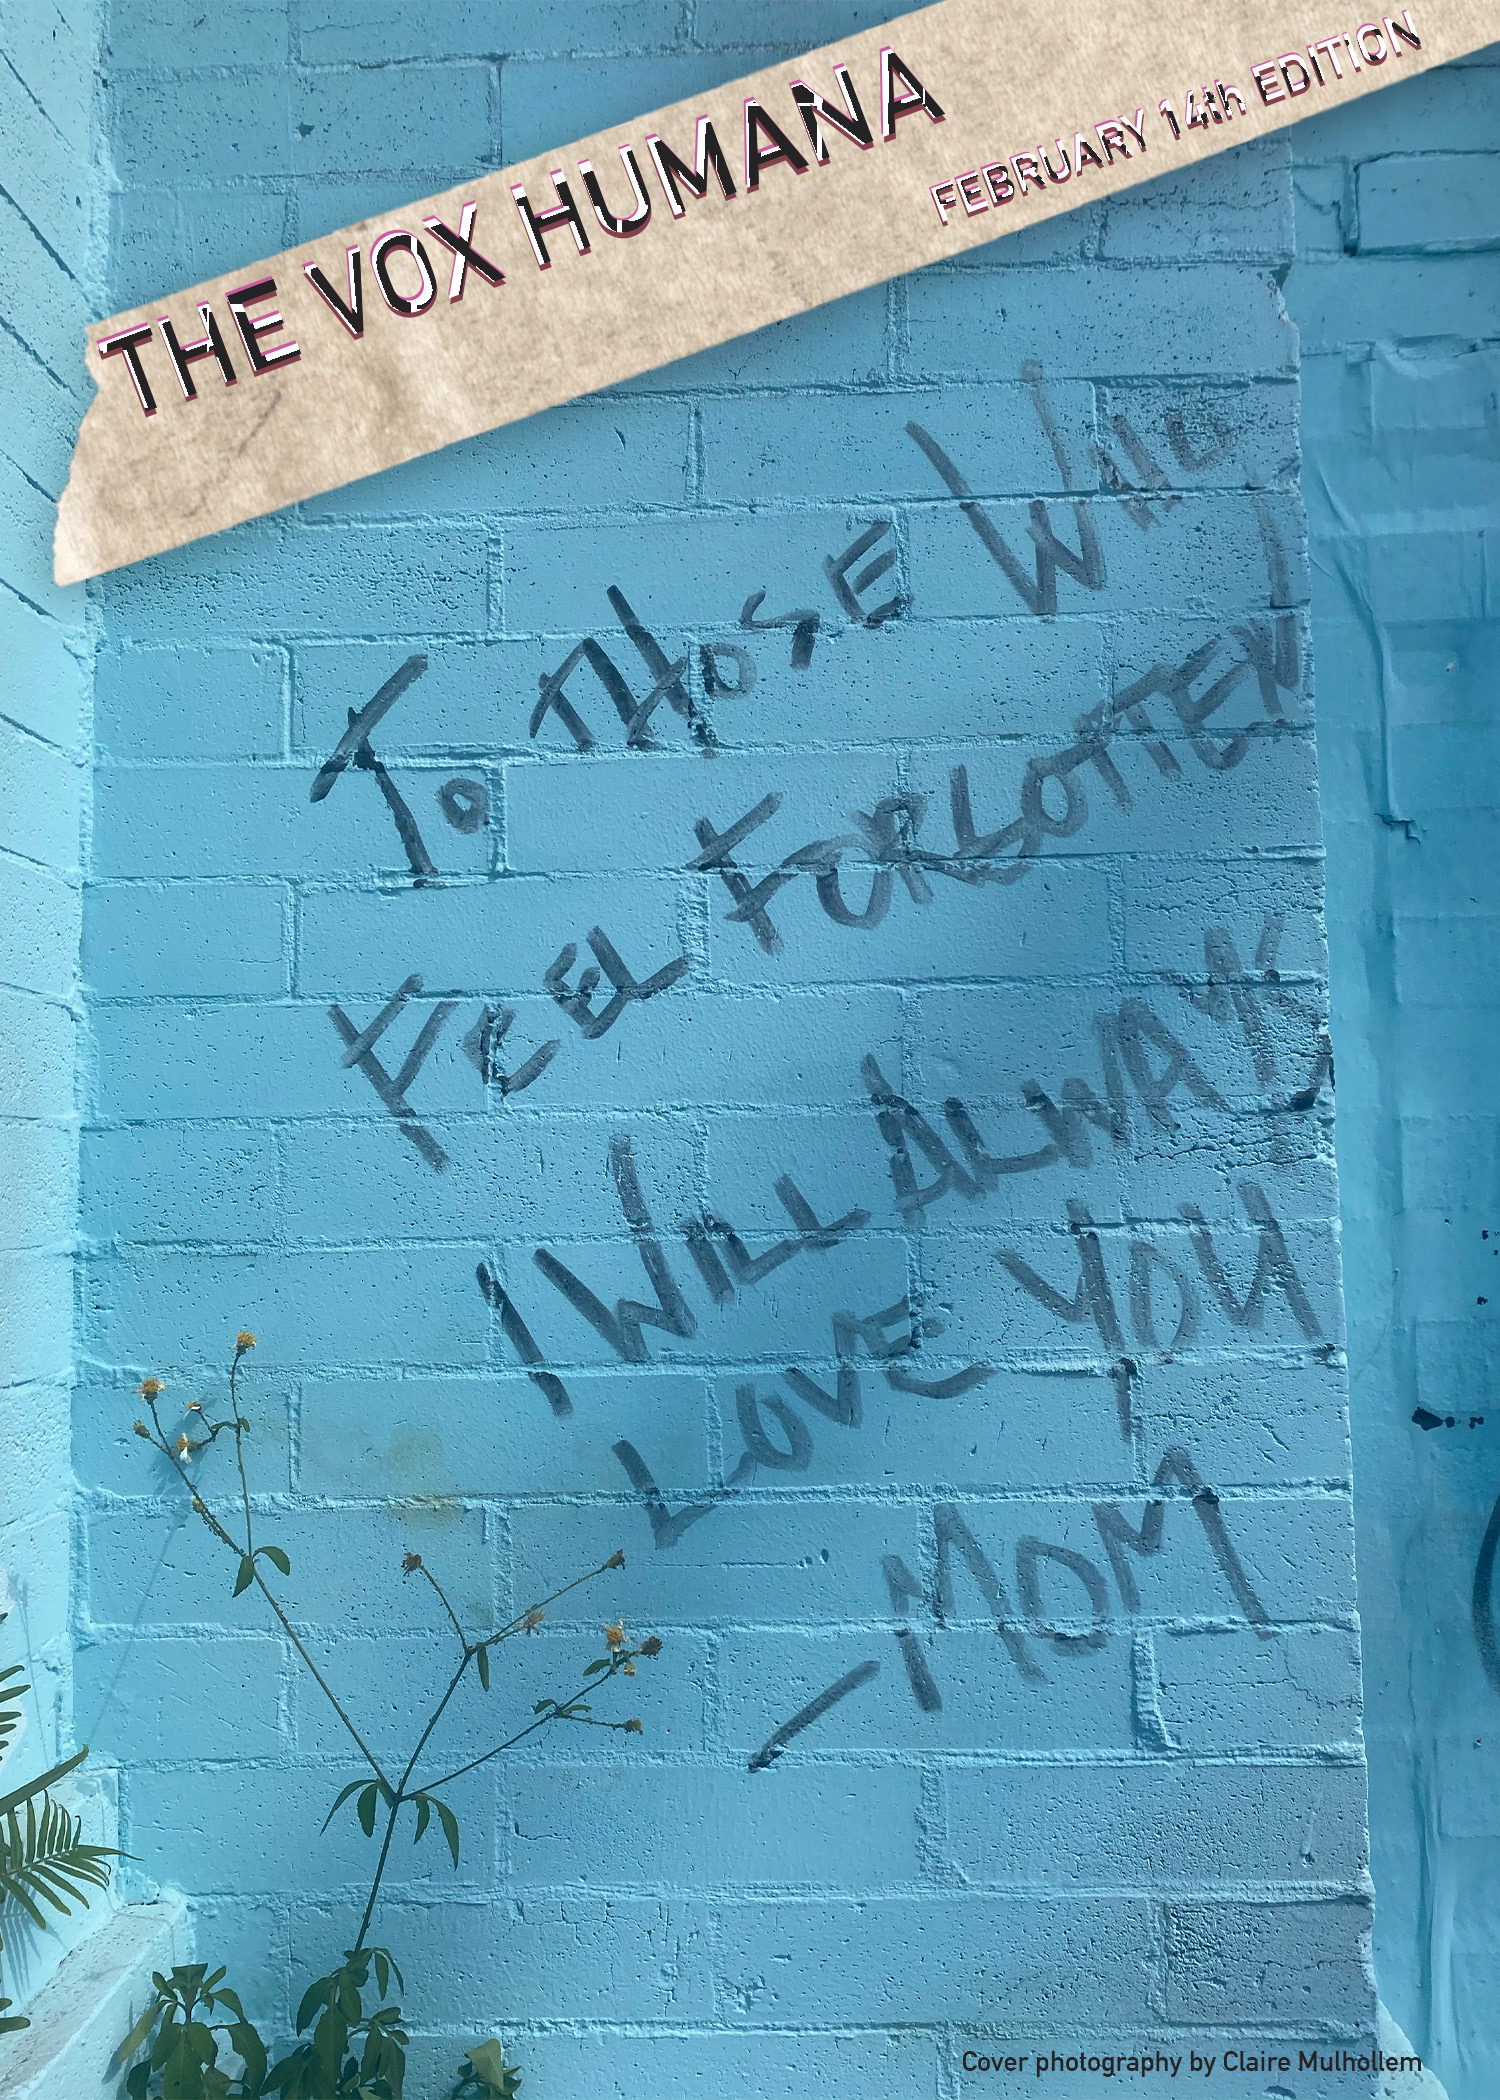 THE VOX HUMANA
FEBRUARY 14th EDITION
To THOSE WHO
FEEL FORGOTTEN,
I WILL ALWAYS
LOVE YOU!
-MOM
Cover photography by Claire Mulhollem